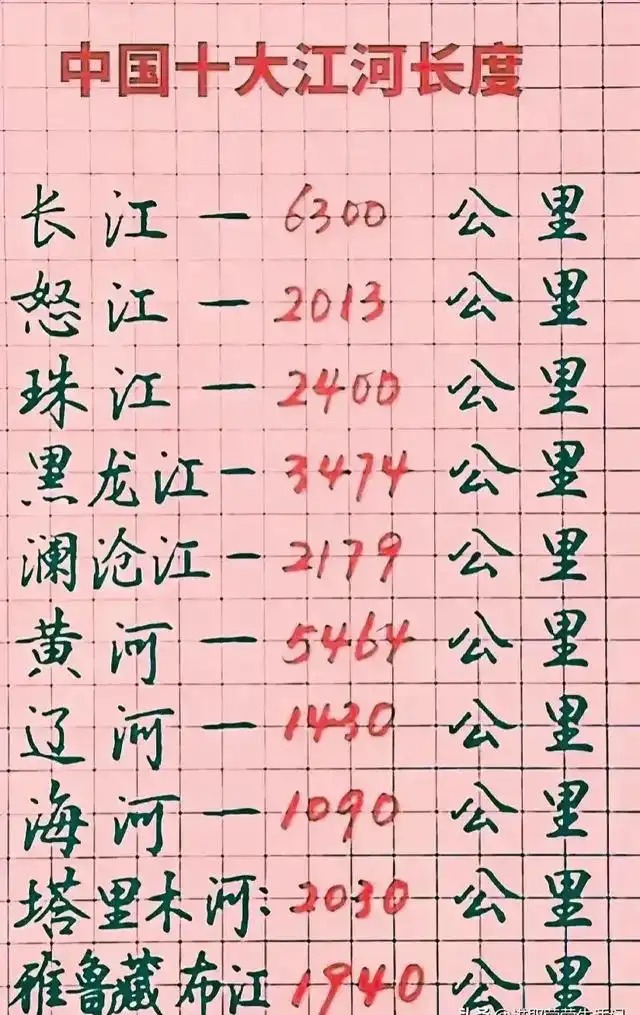 中国十大江河长度
长江一6300公里
怒江一2013公里
珠江一2400公里
黑龙江一3474公里
澜沧江一2179公里
黄河一5464公里
辽河一1430公里
海河一1090公里
塔里木河:2030公里
雅鲁藏布江1940公里